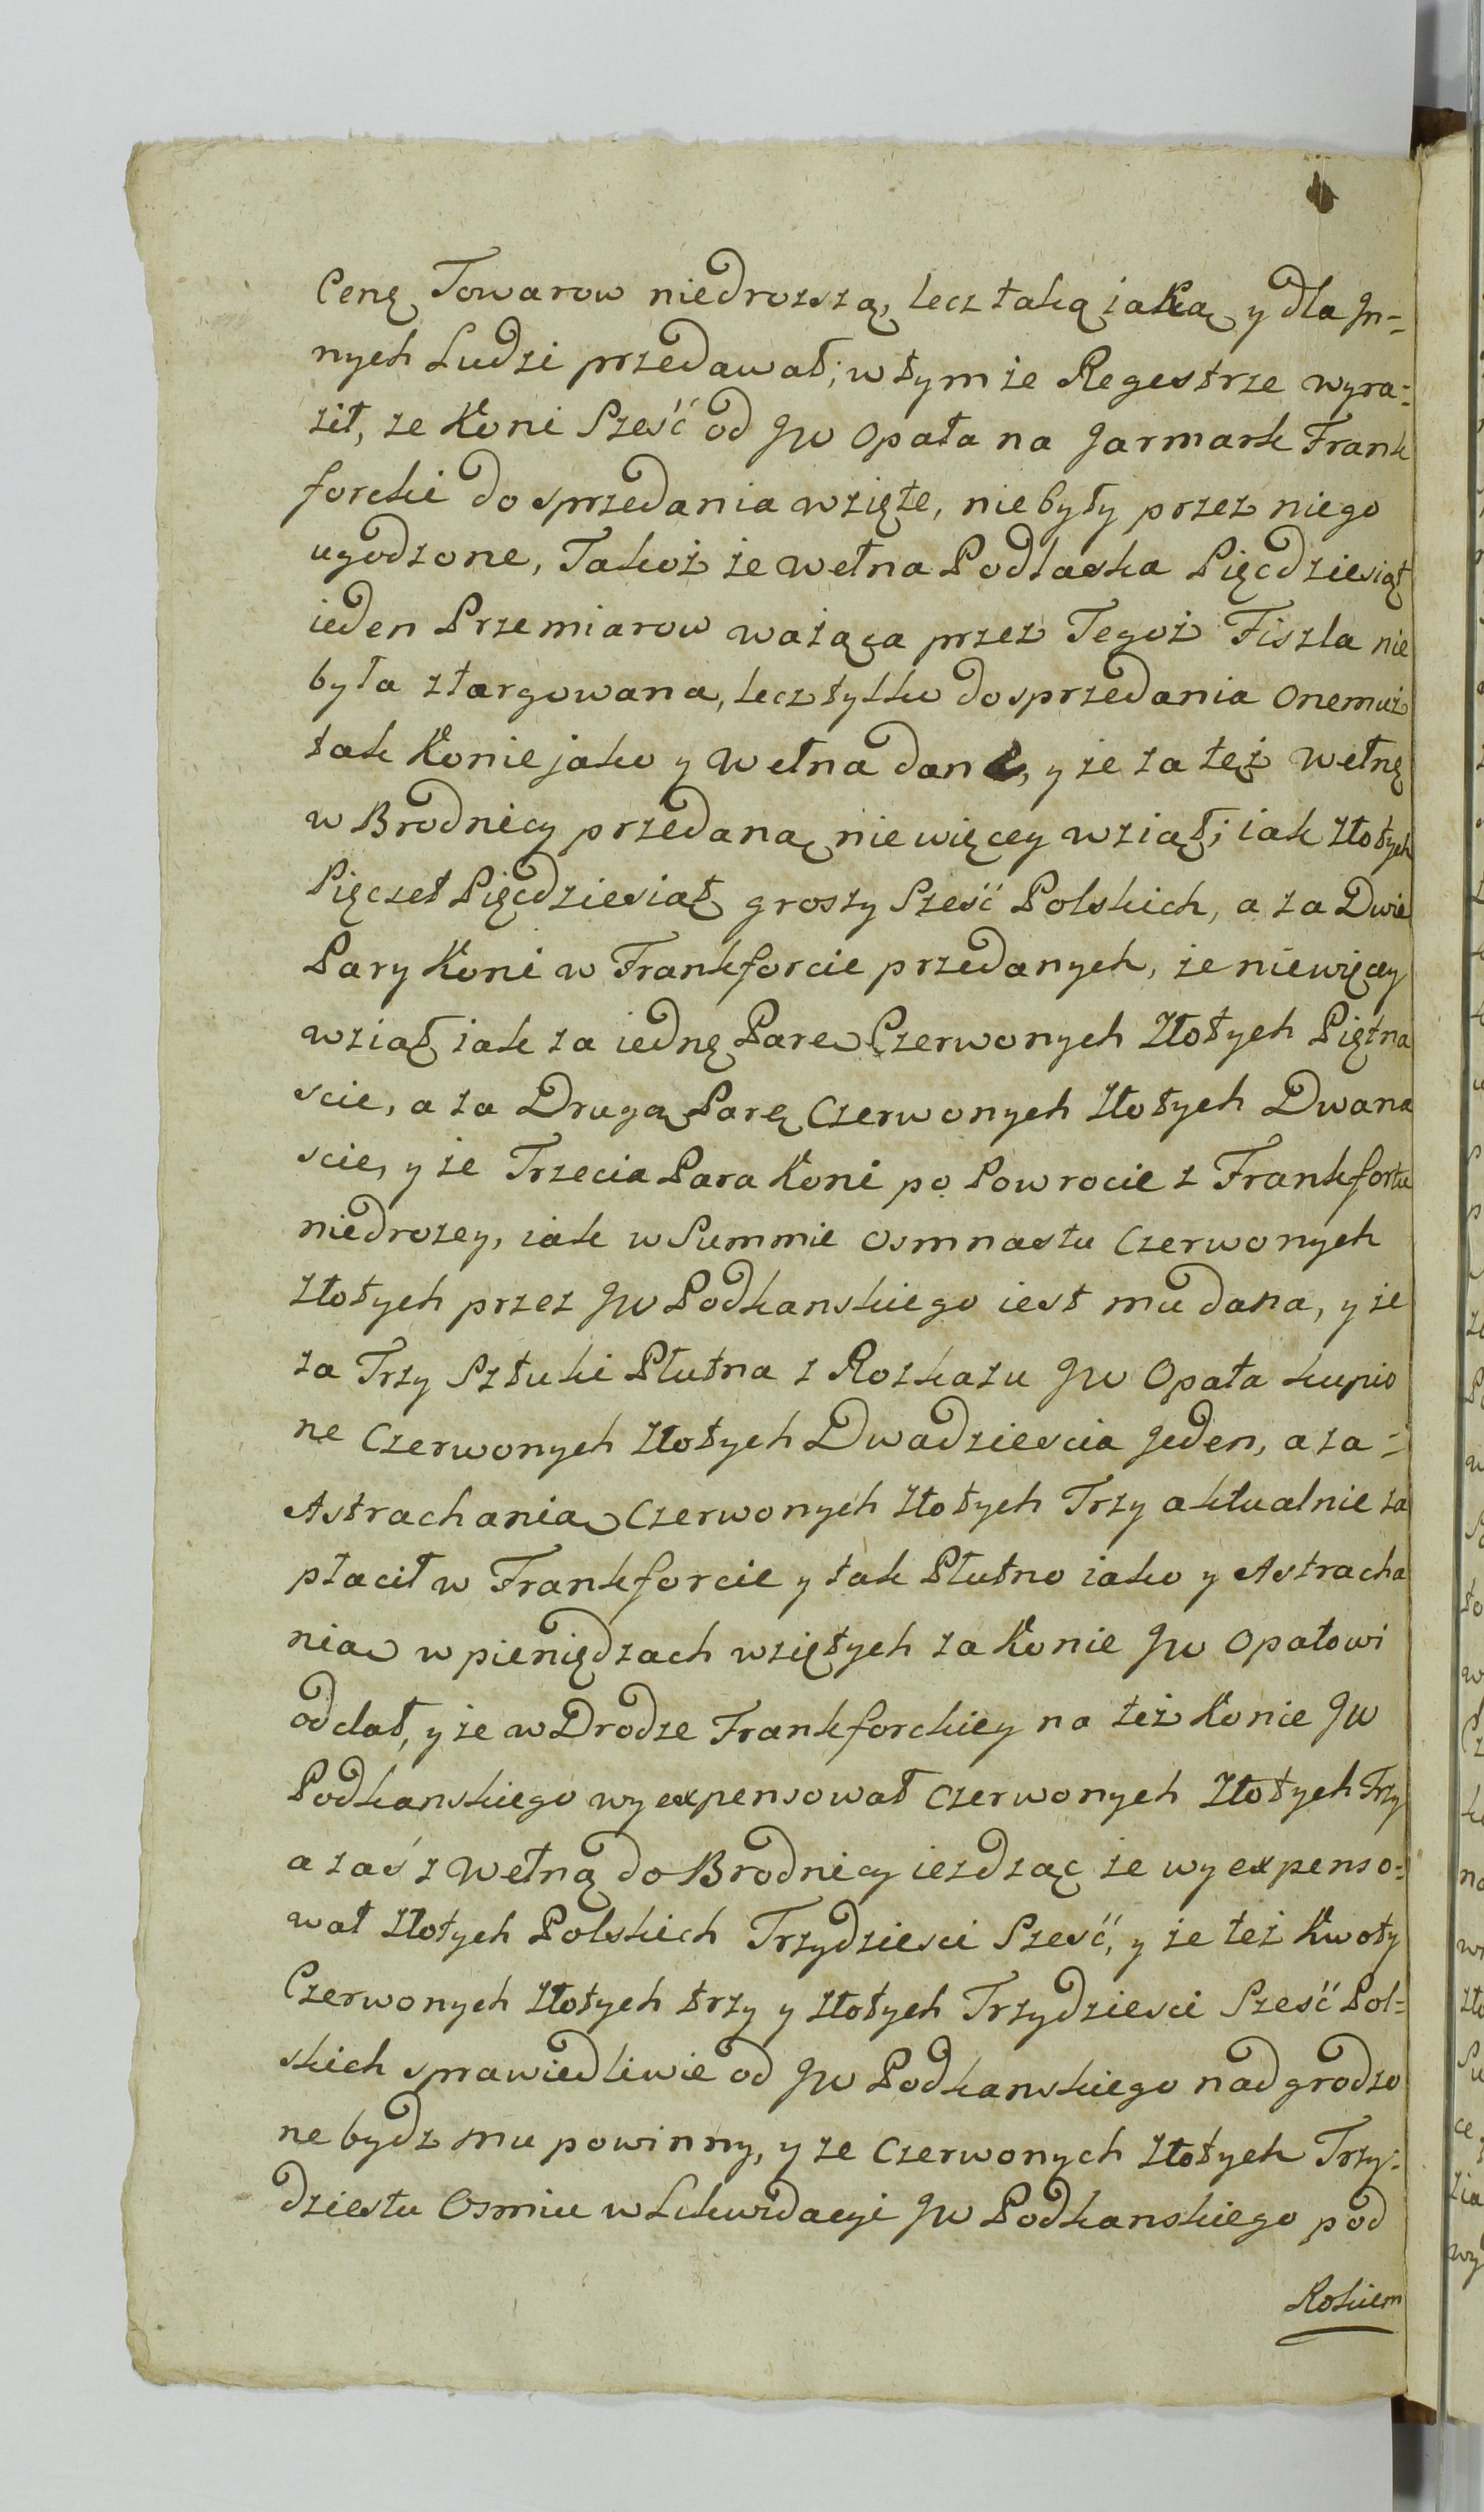 Cenę Towarow niedrozszą, lecz taką iaką y dla In-
nych Ludzi przedawał; w tymże Regestrze wyra-
ził, ze Koni Sześć od JW Opata na Jarmark Frank
forcki do sprzedania wzięte, nie były przez niego
ugodzone, Takoż że wełna Podlaska Pięcdziesiąt
ieden Przemiarow ważąca przez Tegoż Fiszla nie
była ztargowana, lecz tylko do sprzedania onemuż
tak Konie jako y Wełna dane, y że za też wełnę
w Brodnicy przedaną nie więcey wziął; iak złotych
Pięczet Pięcdziesiąt groszy Sześć Polskich, a za Dwie
Pary Koni w Frankforcie przedanych, że niewięcey
wziął iak za iednę Parę Czerwonych Złotych Piętna
scie, a za Drugą Parę Czerwonych złotych Dwana
scie, y że Trzecia Para Koni po Powrocie z Frankfortu
niedrożey, iak w Summie osmnastu Czerwonych
Złotych przez JW Podkanskiego iest mu dana, y że
za Trzy Sztuki Płutna z Rozkazu JW Opata kupio
ne Czerwonych złotych Dwadziescia Jeden, a za-
Astrachania Czerwonych złotych Trzy aktualnie za
płacił w Frankforcie y tak Płutno iako y Astracha
nia w pieniędzach wziętych za Konie JW Opatowi
oddał, y że w Drodze Frankforckiey na też Konie JW
Podkanskiego wyexpensował Czerwonych Złotych Trzy
a zaś z Wełną do Brodnicy iezdząc że wyexpenso-
wał złotych Polskich Trzydziesci Sześć, y że też Kwoty
Czerwonych złotych trzy y złotych Trzydziesci Sześć Pol-
skich sprawiedliwie od JW Podkanskiego nadgrodzo
ne bydz mu powinny, y ze Czerwonych złotych Trzy-
dziestu Osmiu w Likwidacyi JW Podkanskiego pod
Rokiem